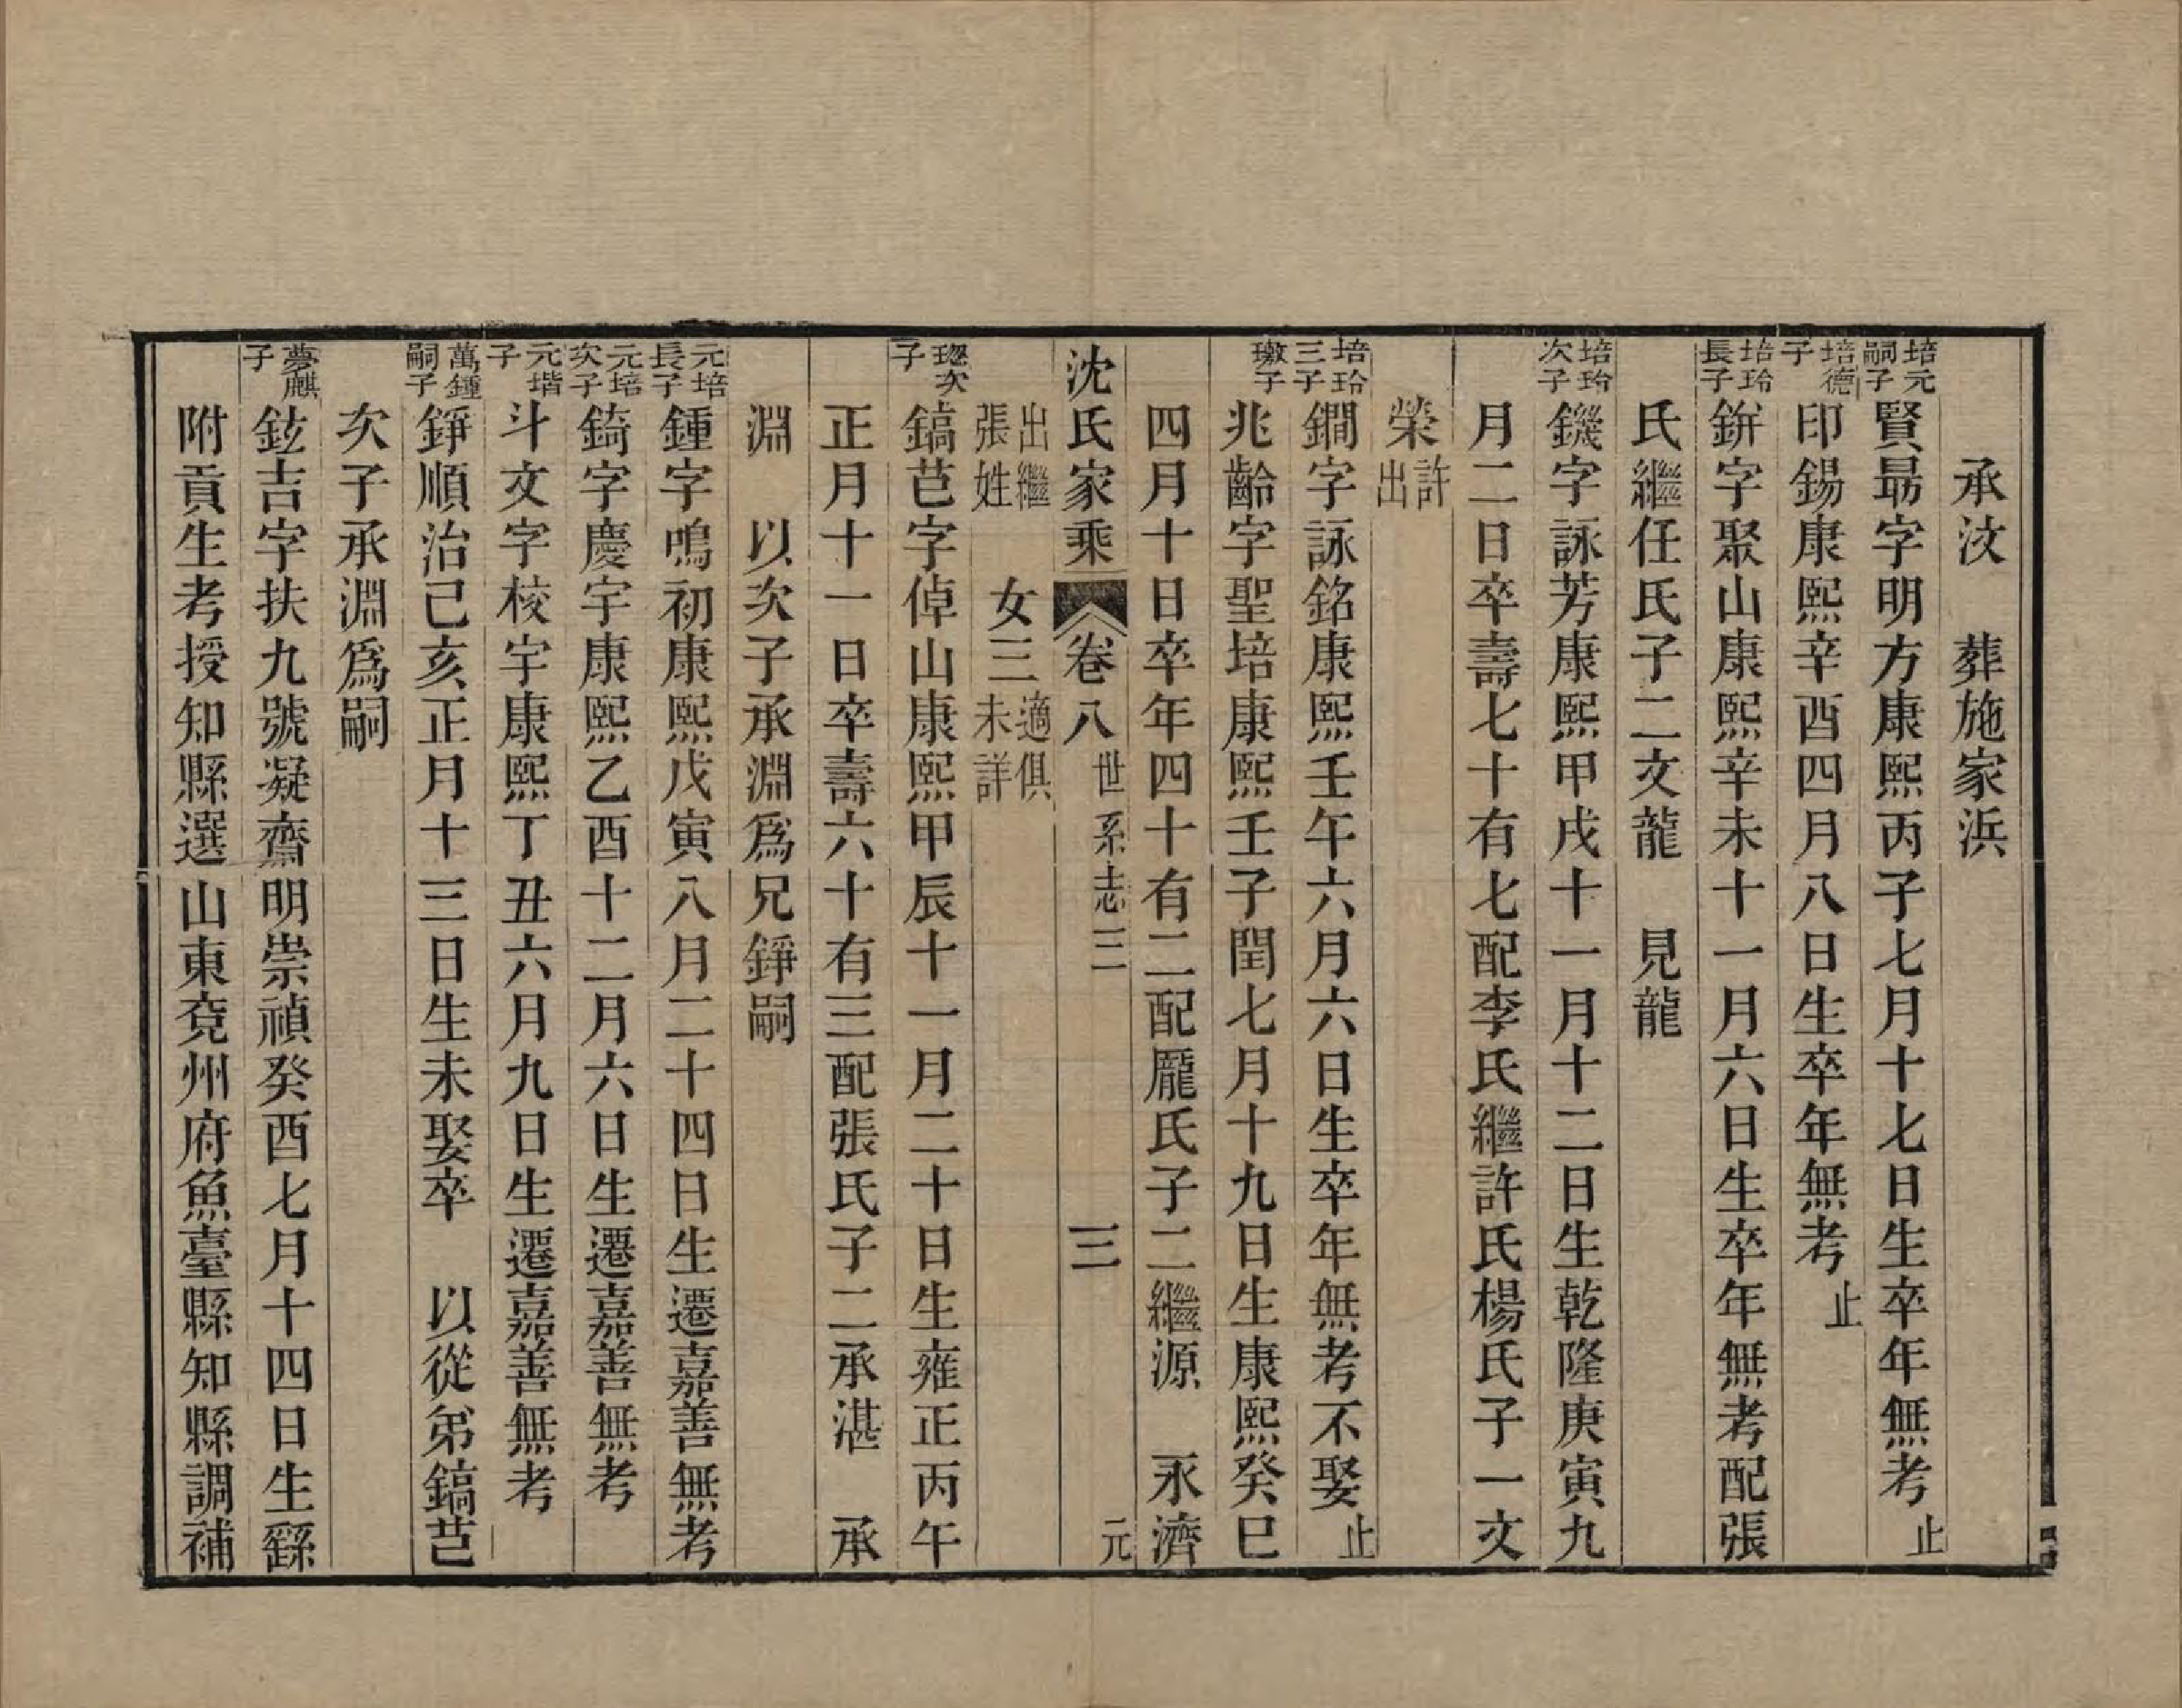 承汶　葬施家浜
培元嗣子賢最字明方康熙丙子七月十七日生卒年無考止
培德子印錫康熙辛酉四月八日生卒年無考止
培玲長子鉼字聚山康熙辛未十一月六日生卒年無考配張
氏繼任氏子二文龍　見龍
培玲次子鐖字詠芳康熙甲戌十一月十二日生乾隆庚寅九
月二日卒壽七十有七配李氏繼許氏楊氏子一文
榮許出
培玲三子鐧字詠銘康熙壬午六月六日生卒年無考不娶止
璈子兆齡字聖培康熙壬子閏七月十九日生康熙癸巳
四月十日卒年四十有二配龎氏子二繼源　永濟
沈氏家乘　卷八　世系志三　三　元
出繼張姓　女三適俱未詳
璁次子鎬芑字倬山康熙甲辰十一月二十日生雍正丙午
正月十一日卒壽六十有三配張氏子二承湛　承
淵　以次子承淵爲兄錚嗣
元培長子鍾字鳴初康熙戊寅八月二十四日生遷嘉善無考
元培次子錡字慶宇康熙乙酉十二月六日生遷嘉善無考
元堦子斗文字校宇康熙丁丑六月九日生遷嘉善無考
萬鍾嗣子錚順治己亥正月十三日生未娶卒　以從弟鎬芑
次子承淵爲嗣
夢麒子鉉吉字扶九號凝齋明崇禎癸酉七月十四日生繇
附貢生考授知縣選山東兗州府魚臺縣知縣調補